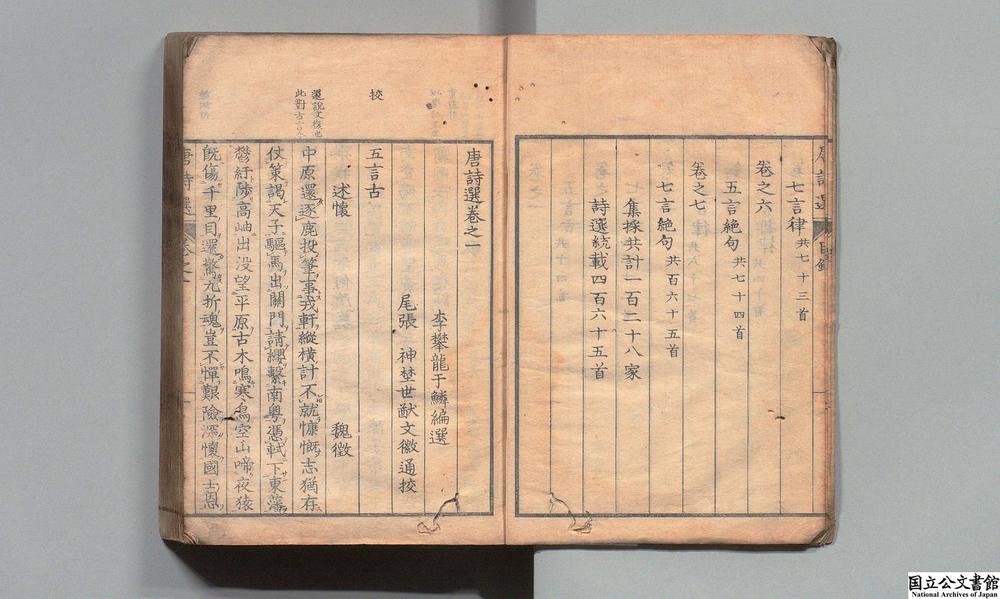 七言律 共七十三首
卷之六
五言絶句 共七十四首
卷之七
七言絶句 共百六十五首
集採共計一百二十八家
詩選統載四百六十五首
唐詩選 目錄
唐詩選卷之一
李攀龍于鱗編選
尾張 神埜世猷文徽通挍
五言古
述懷 魏徵
中原還逐鹿投筆事戎軒縱横計不就慷慨志猶存
仗策謁天子驅馬出關門請纓繫南粤憑軾下東藩
鬱紆陟高岫出没望平原古木鳴寒鳥空山啼夜猿
旣傷千里目還驚九折魂豈不憚艱險深懷國士恩
挍
唐詩選 卷之一
国立公文書館
National Archives of Japan